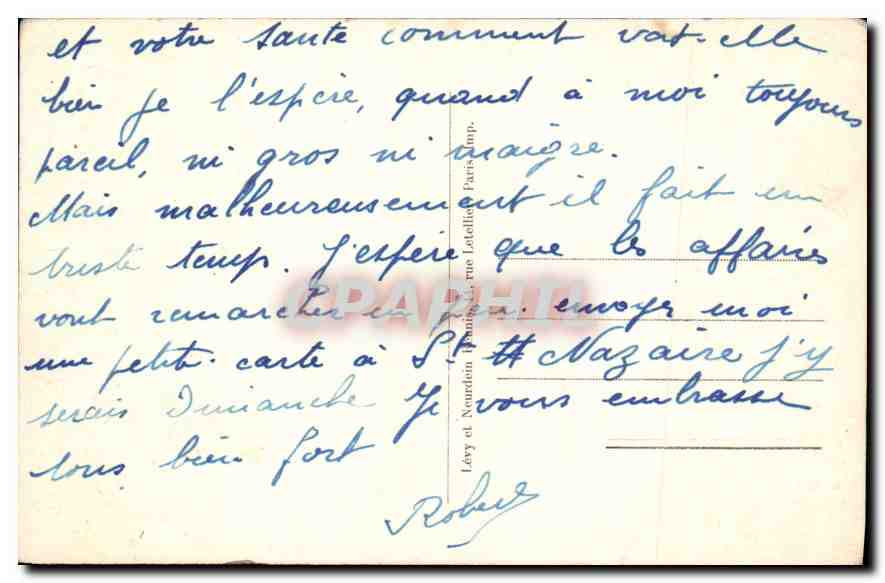 et votre santé comment vat-elle
bien je l'espère, quand à moi toujours
pareil, ni gros ni maigre.
Mais malheureusement il fait un
triste temp. J'espère que les affaires
vont remarcher un peu. envoyez moi
une petite carte à St Nazaire j'y
serais Dimanche Je vous embrasse
tous bien fort
Robert
Lévy et Neurdein Réunis, 44, rue Letellier, Paris Imp.
CPAPHIL